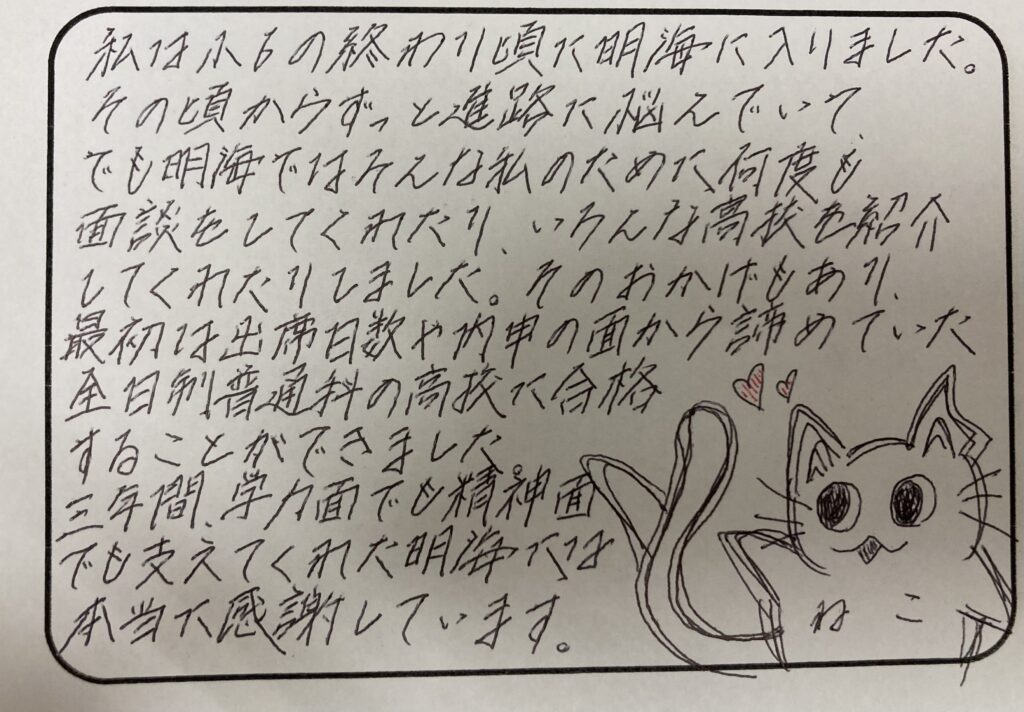 私は小6の終わり頃に明海に入りました。
その頃からずっと進路に悩んでいて、
でも明海ではそんな私のために、何度も
面談をしてくれたり、いろんな高校を紹介
してくれたりしました。そのおかげもあり、
最初は出席日数や内申の面から諦めていた
全日制普通科の高校に合格
することができました。
三年間、学力面でも精神面
でも支えてくれた明海には
本当に感謝しています。
ねこ